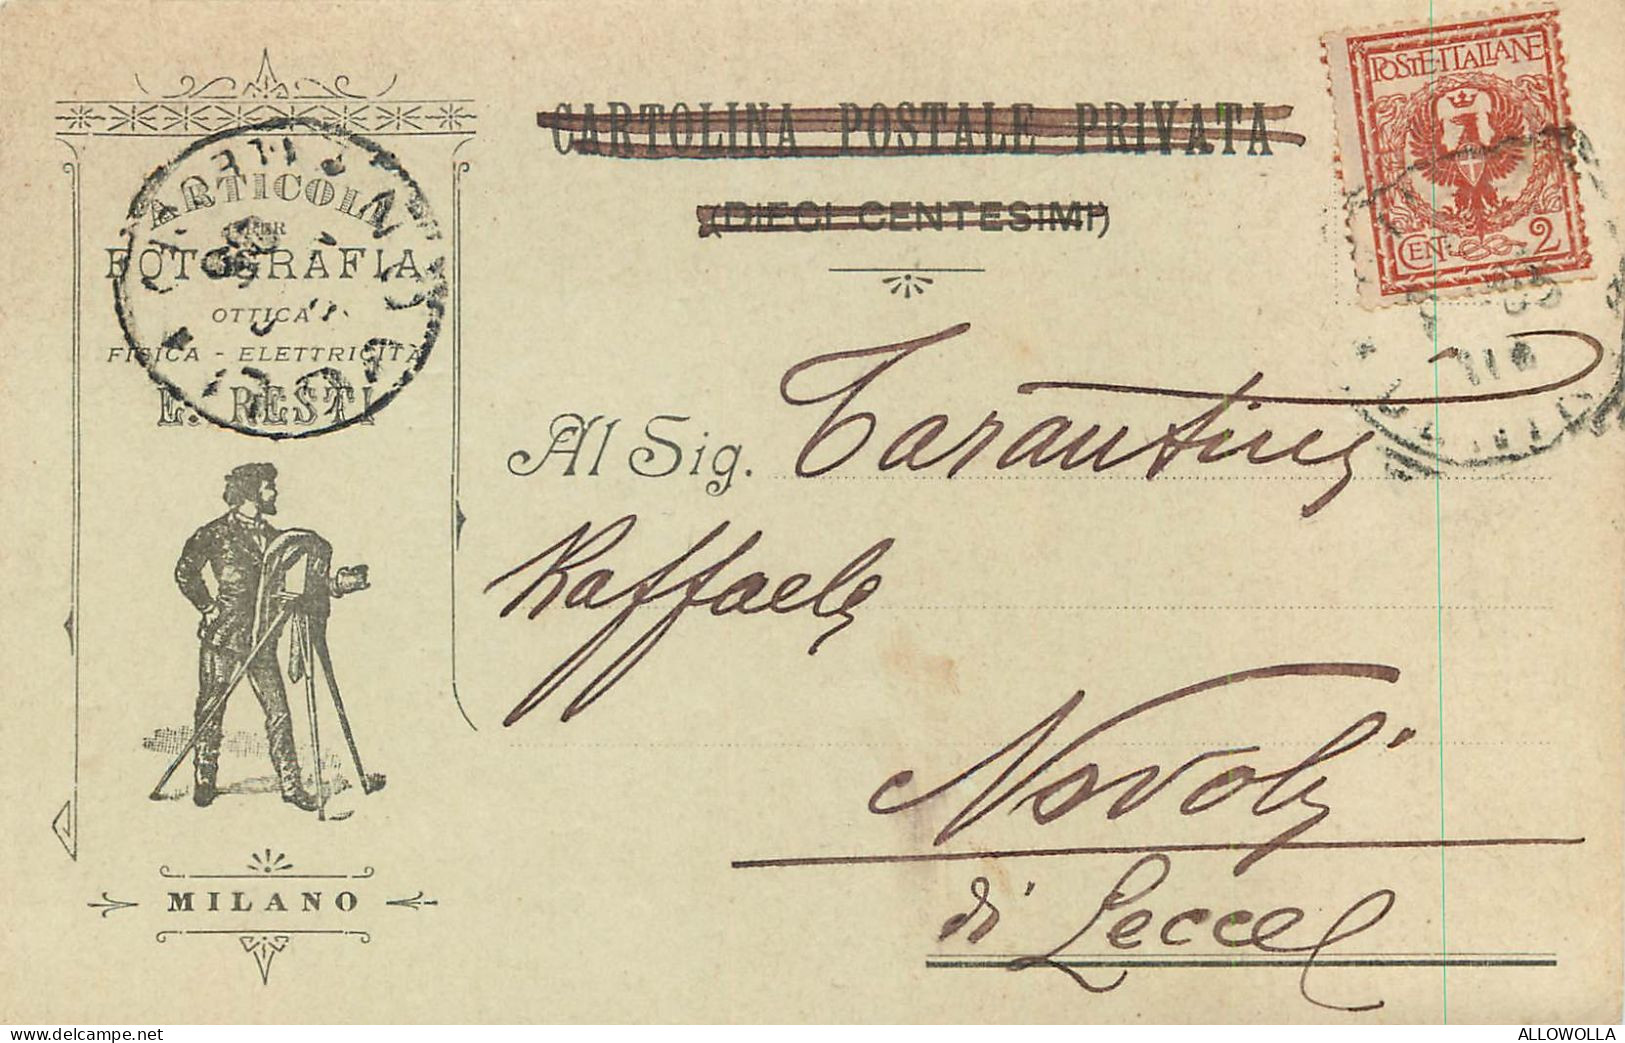 CARTOLINA POSTALE PRIVATA
(DIECI CENTESIMI)
POSTE·ITALIANE
CEN· 2
ARTICOLI
PER
FOTOGRAFIA
OTTICA
FISICA - ELETTRICITÀ
E. RESTI
MILANO
Al Sig. Tarantini
Raffaele
Novoli
di Lecce
ALLOWOLLA